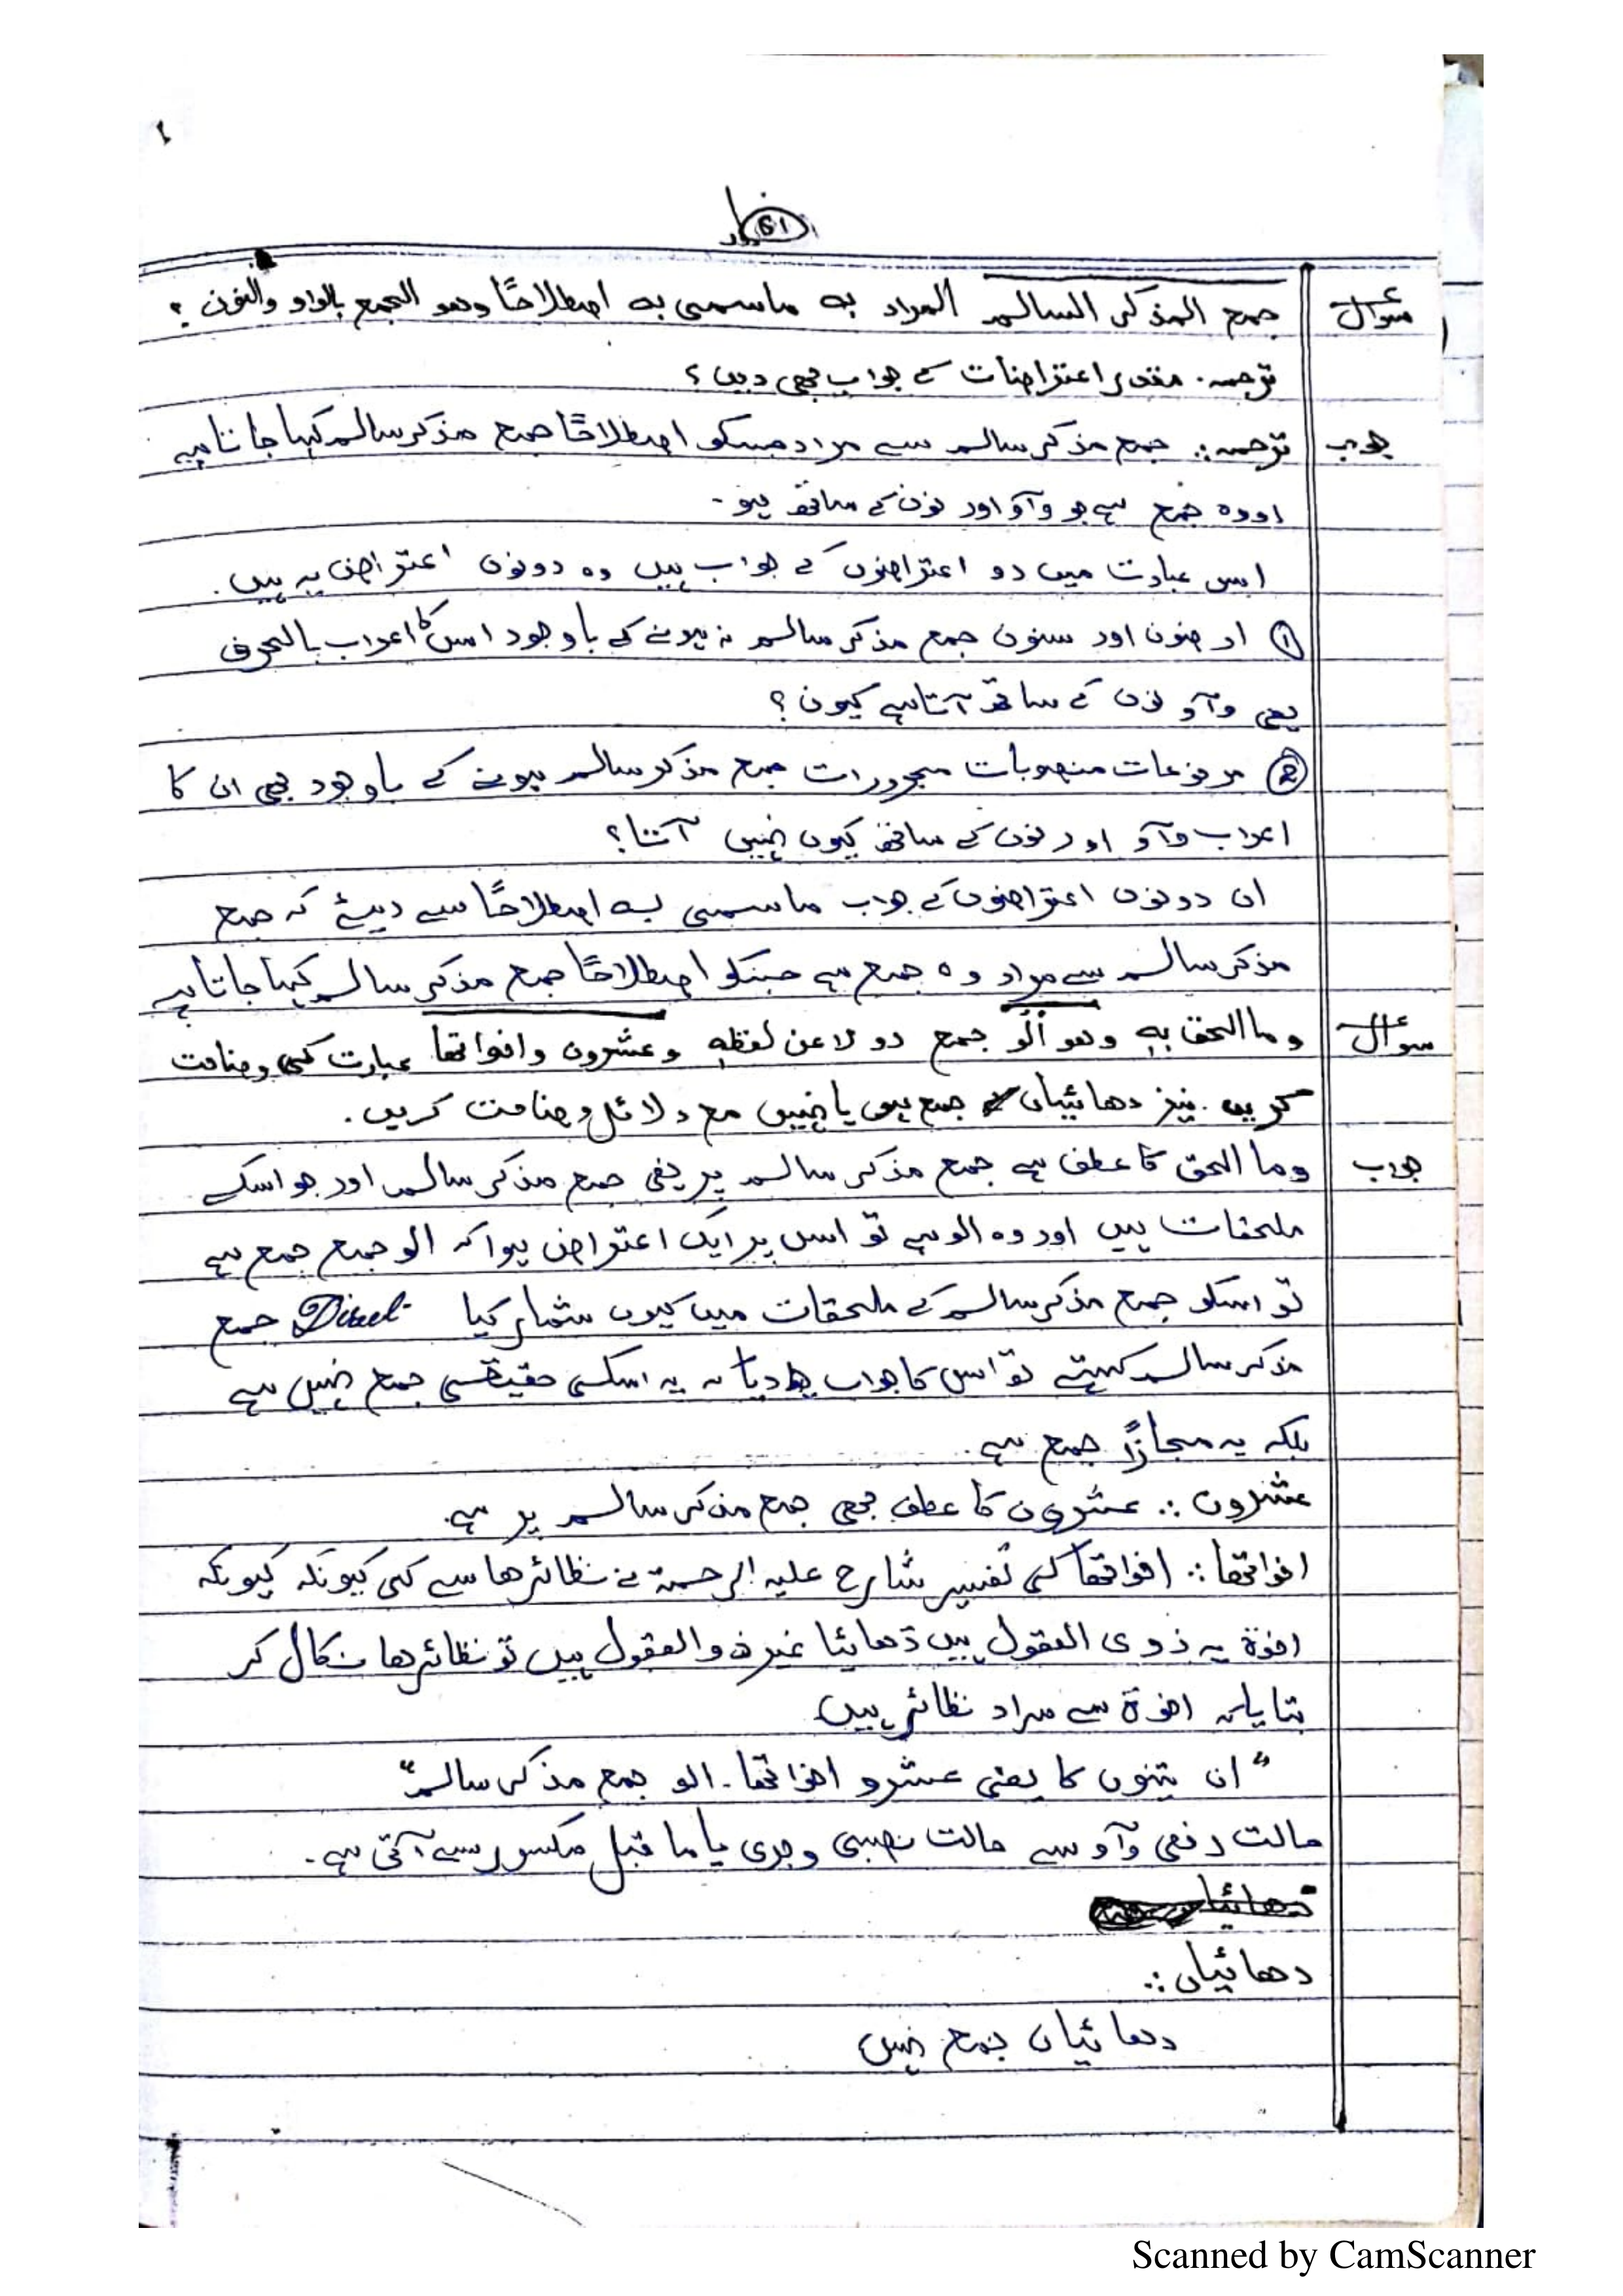 61
سوال جمع المذکر السالم المراد به ماسمی به اصطلاحًا وهو الجمع بالواو والنون ؟
ترجمہ. مقدر اعتراضات کے جواب بھی دیں؟
جواب ترجمہ:. جمع مذکر سالم سے مراد جسکو اصطلاحًا جمع مذکر سالم کہا جاتا ہے
اور وہ جمع ہے جو وآؤ اور نون کے ساتھ ہو۔
اس عبارت میں دو اعتراضوں کے جواب ہیں وہ دونوں اعتراض یہ ہیں.
① ارضون اور سنون جمع مذکر سالم نہ ہونے کے باوجود اس کا اعراب بالحرف
یعنی وآؤ نون کے ساتھ آتا ہے کیوں؟
② مرفوعات منصوبات مجرورات جمع مذکر سالم ہونے کے باوجود بھی ان کا
اعراب وآؤ اور نون کے ساتھ کیوں نہیں آتا؟
ان دونوں اعتراضوں کے جواب ماسمی به اصطلاحًا سے دیئے کہ جمع
مذکر سالم سے مراد وہ جمع ہے جسکو اصطلاحًا جمع مذکر سالم کہا جاتا ہے
سوال وما الحق به وهو ألو جمع ذو لا عن لفظه وعشرون واخواتها عبارت کی وضاحت
کریں. نیز دھائیاں جمع ہیں یا نہیں مع دلائل وضاحت کریں.
جواب وما الحق کا عطف ہے جمع مذکر سالم پر یعنی جمع مذکر سالم اور جو اسکے
ملحقات ہیں اور وہ الو ہے تو اس پر ایک اعتراض ہوا کہ الو جمع جمع ہے
تو اسکو جمع مذکر سالم کے ملحقات میں کیوں شمار کیا Direct جمع
مذکر سالم کہتے تو اس کا جواب دیا کہ یہ اسکی حقیقی جمع نہیں ہے
بلکہ یہ مجازًا جمع ہے.
عشرون:. عشرون کا عطف بھی جمع مذکر سالم پر ہے.
اخواتها:. اخواتها کی تفسیر شارح علیہ الرحمۃ نے نظائرها سے کی کیونکہ کیونکہ
اخوۃ یہ ذوی العقول ہیں دھائیا غیر ذوالعقول ہیں تو نظائرها نکال کر
بتایا کہ اخوۃ سے مراد نظائر ہیں
"ان تینوں کا یعنی عشرو اخواتها. الو جمع مذکر سالم"
حالت رفعی وآؤ سے حالت نصبی و جری یا ما قبل مکسور سے آتی ہے.
دھائیاں:.
دھائیاں جمع نہیں
Scanned by CamScanner